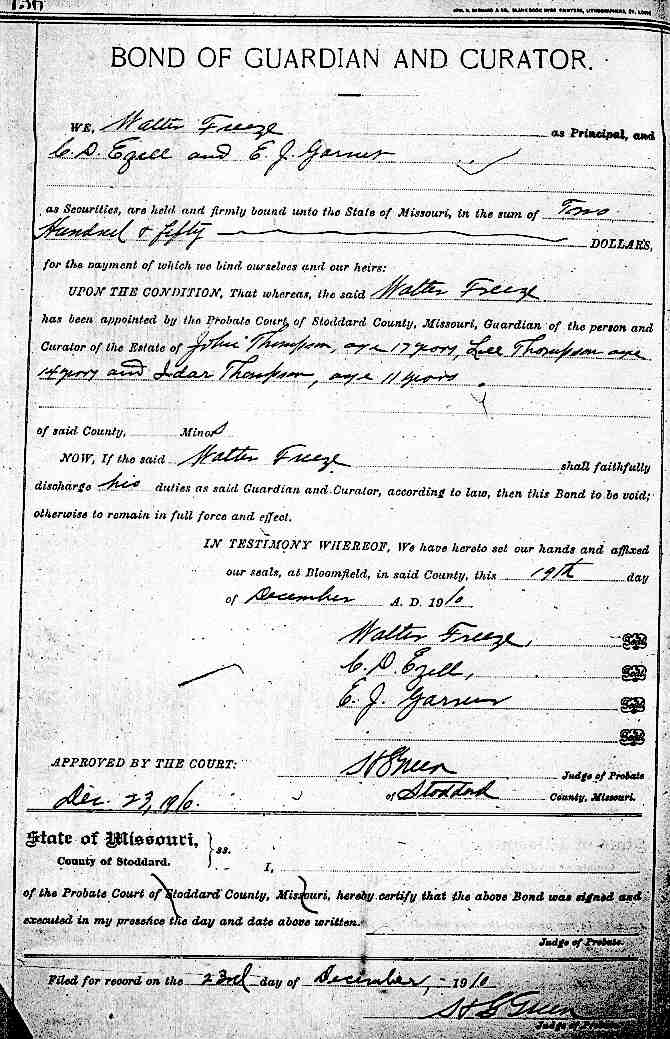 156
BOND OF GUARDIAN AND CURATOR.
WE, Walter Freeze as Principal, and
C. D. Ezell and E. J. Garner
as Securities, are held and firmly bound unto the State of Missouri, in the sum of Two
Hundred & fifty DOLLARS,
for the payment of which we bind ourselves and our heirs:
UPON THE CONDITION, That whereas, the said Walter Freeze
has been appointed by the Probate Court of Stoddard County, Missouri, Guardian of the person and
Curator of the Estate of John Thompson, age 17 years, Lee Thompson age
14 years and Idar Thompson, age 11 years.
of said County, Minors
NOW, If the said Walter Freeze shall faithfully
discharge his duties as said Guardian and Curator, according to law, then this Bond to be void;
otherwise to remain in full force and effect.
IN TESTIMONY WHEREOF, We have hereto set our hands and affixed
our seals, at Bloomfield, in said County, this 19th day
of December A. D. 1910
Walter Freeze, Seal
C. D. Ezell, Seal
E. J. Garner Seal
Seal
APPROVED BY THE COURT: Green Judge of Probate
Dec. 23, 1910. of Stoddard County, Missouri.
State of Missouri,
County of Stoddard. } ss. I,
of the Probate Court of Stoddard County, Missouri, hereby certify that the above Bond was signed and
executed in my presence the day and date above written.
Judge of Probate.
Filed for record on the 23rd day of December, 1910
Green
Judge of Probate